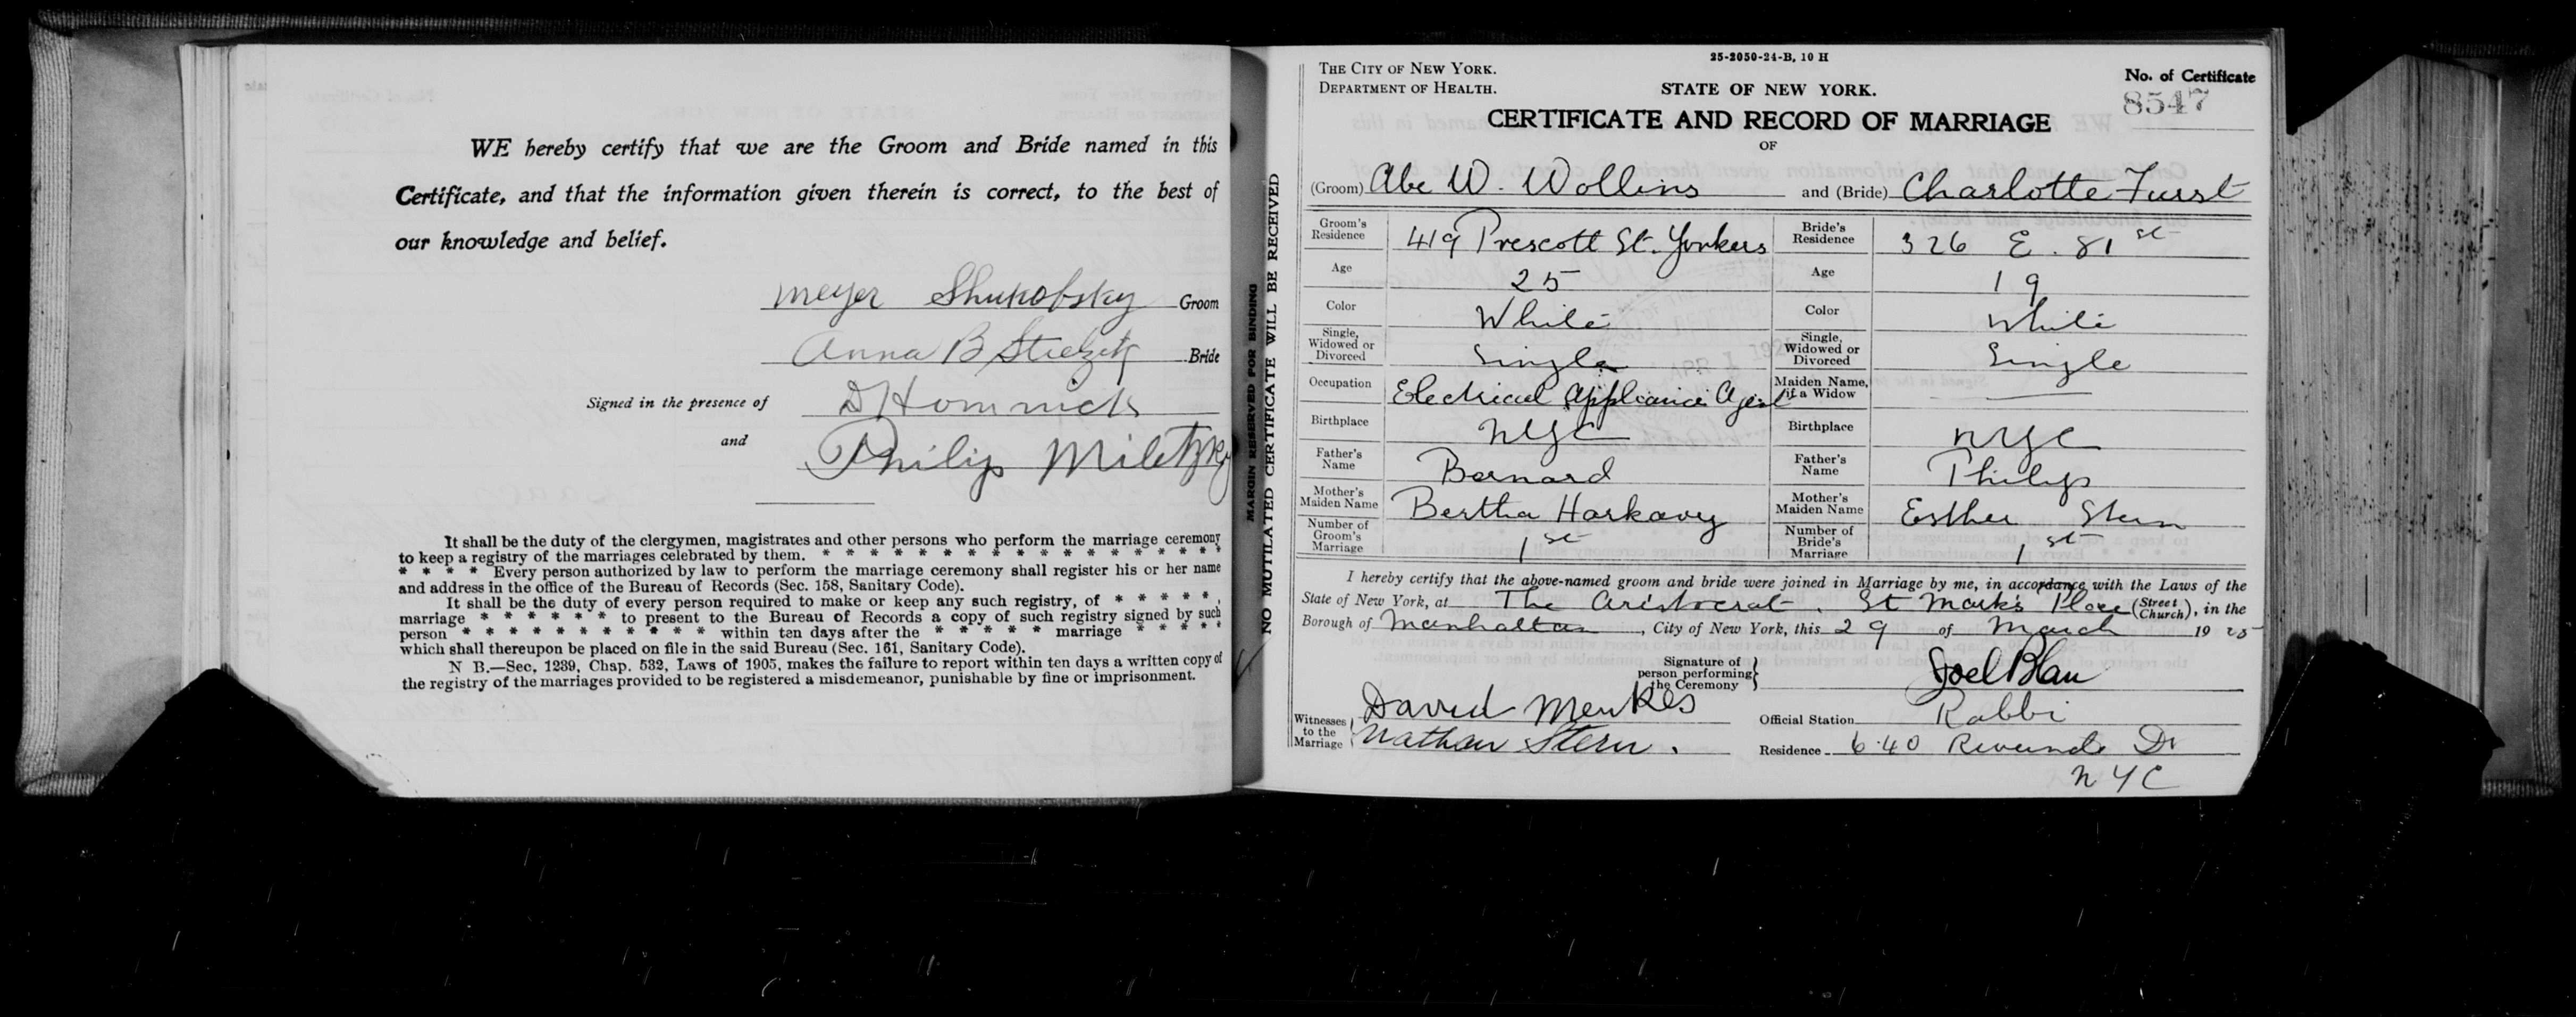 WE hereby certify that we are the Groom and Bride named in this
Certificate, and that the information given therein is correct, to the best of
our knowledge and belief.
Meyer Shukofsky Groom
Anna B Bride
Signed in the presence of
and Philip Miletzky
It shall be the duty of the clergymen, magistrates and other persons who perform the marriage ceremony
to keep a registry of the marriages celebrated by them. * * * * * * * * * * * * * * * * *
* * * * Every person authorized by law to perform the marriage ceremony shall register his or her name
and address in the office of the Bureau of Records (Sec. 158, Sanitary Code).
It shall be the duty of every person required to make or keep any such registry, of * * * * *
marriage * * * * * * to present to the Bureau of Records a copy of such registry signed by such
person * * * * * * * * * * * within ten days after the * * * * * marriage * * * * *
which shall thereupon be placed on file in the said Bureau (Sec. 161, Sanitary Code).
N B.—Sec. 1239, Chap. 532, Laws of 1905, makes the failure to report within ten days a written copy of
the registry of the marriages provided to be registered a misdemeanor, punishable by fine or imprisonment.
MARGIN RESERVED FOR BINDING
NO MUTILATED CERTIFICATE WILL BE RECEIVED
25-2050-24-B, 10 H
THE CITY OF NEW YORK.
DEPARTMENT OF HEALTH.
STATE OF NEW YORK.
No. of Certificate
8547
CERTIFICATE AND RECORD OF MARRIAGE
OF
(Groom) Abe W. Wollins and (Bride) Charlotte Furst
Groom's Residence 419 Prescott St. Yonkers Bride's Residence 326 E. 81st
Age 25 Age 19
Color White Color White
Single, Widowed or Divorced Single Single, Widowed or Divorced Single
Occupation Electrical Appliance Agent Maiden Name, if a Widow —
Birthplace NYC Birthplace NYC
Father's Name Bernard Father's Name Philip
Mother's Maiden Name Bertha Harkavy Mother's Maiden Name Esther Stern
Number of Groom's Marriage 1st Number of Bride's Marriage 1st
I hereby certify that the above-named groom and bride were joined in Marriage by me, in accordance with the Laws of the
State of New York, at The Aristocrat, St Mark's Place (Street Church), in the
Borough of Manhattan, City of New York, this 29 of March 1925
Signature of person performing the Ceremony } Joel Blau
Witnesses to the Marriage { David Menkes
Nathan Stern.
Official Station Rabbi
Residence 640 Riverside Dr
NYC